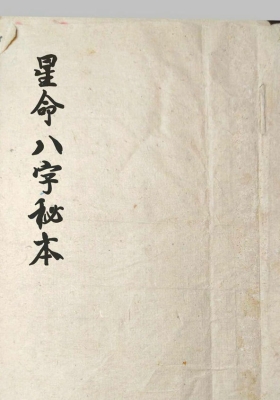 星命八字秘本